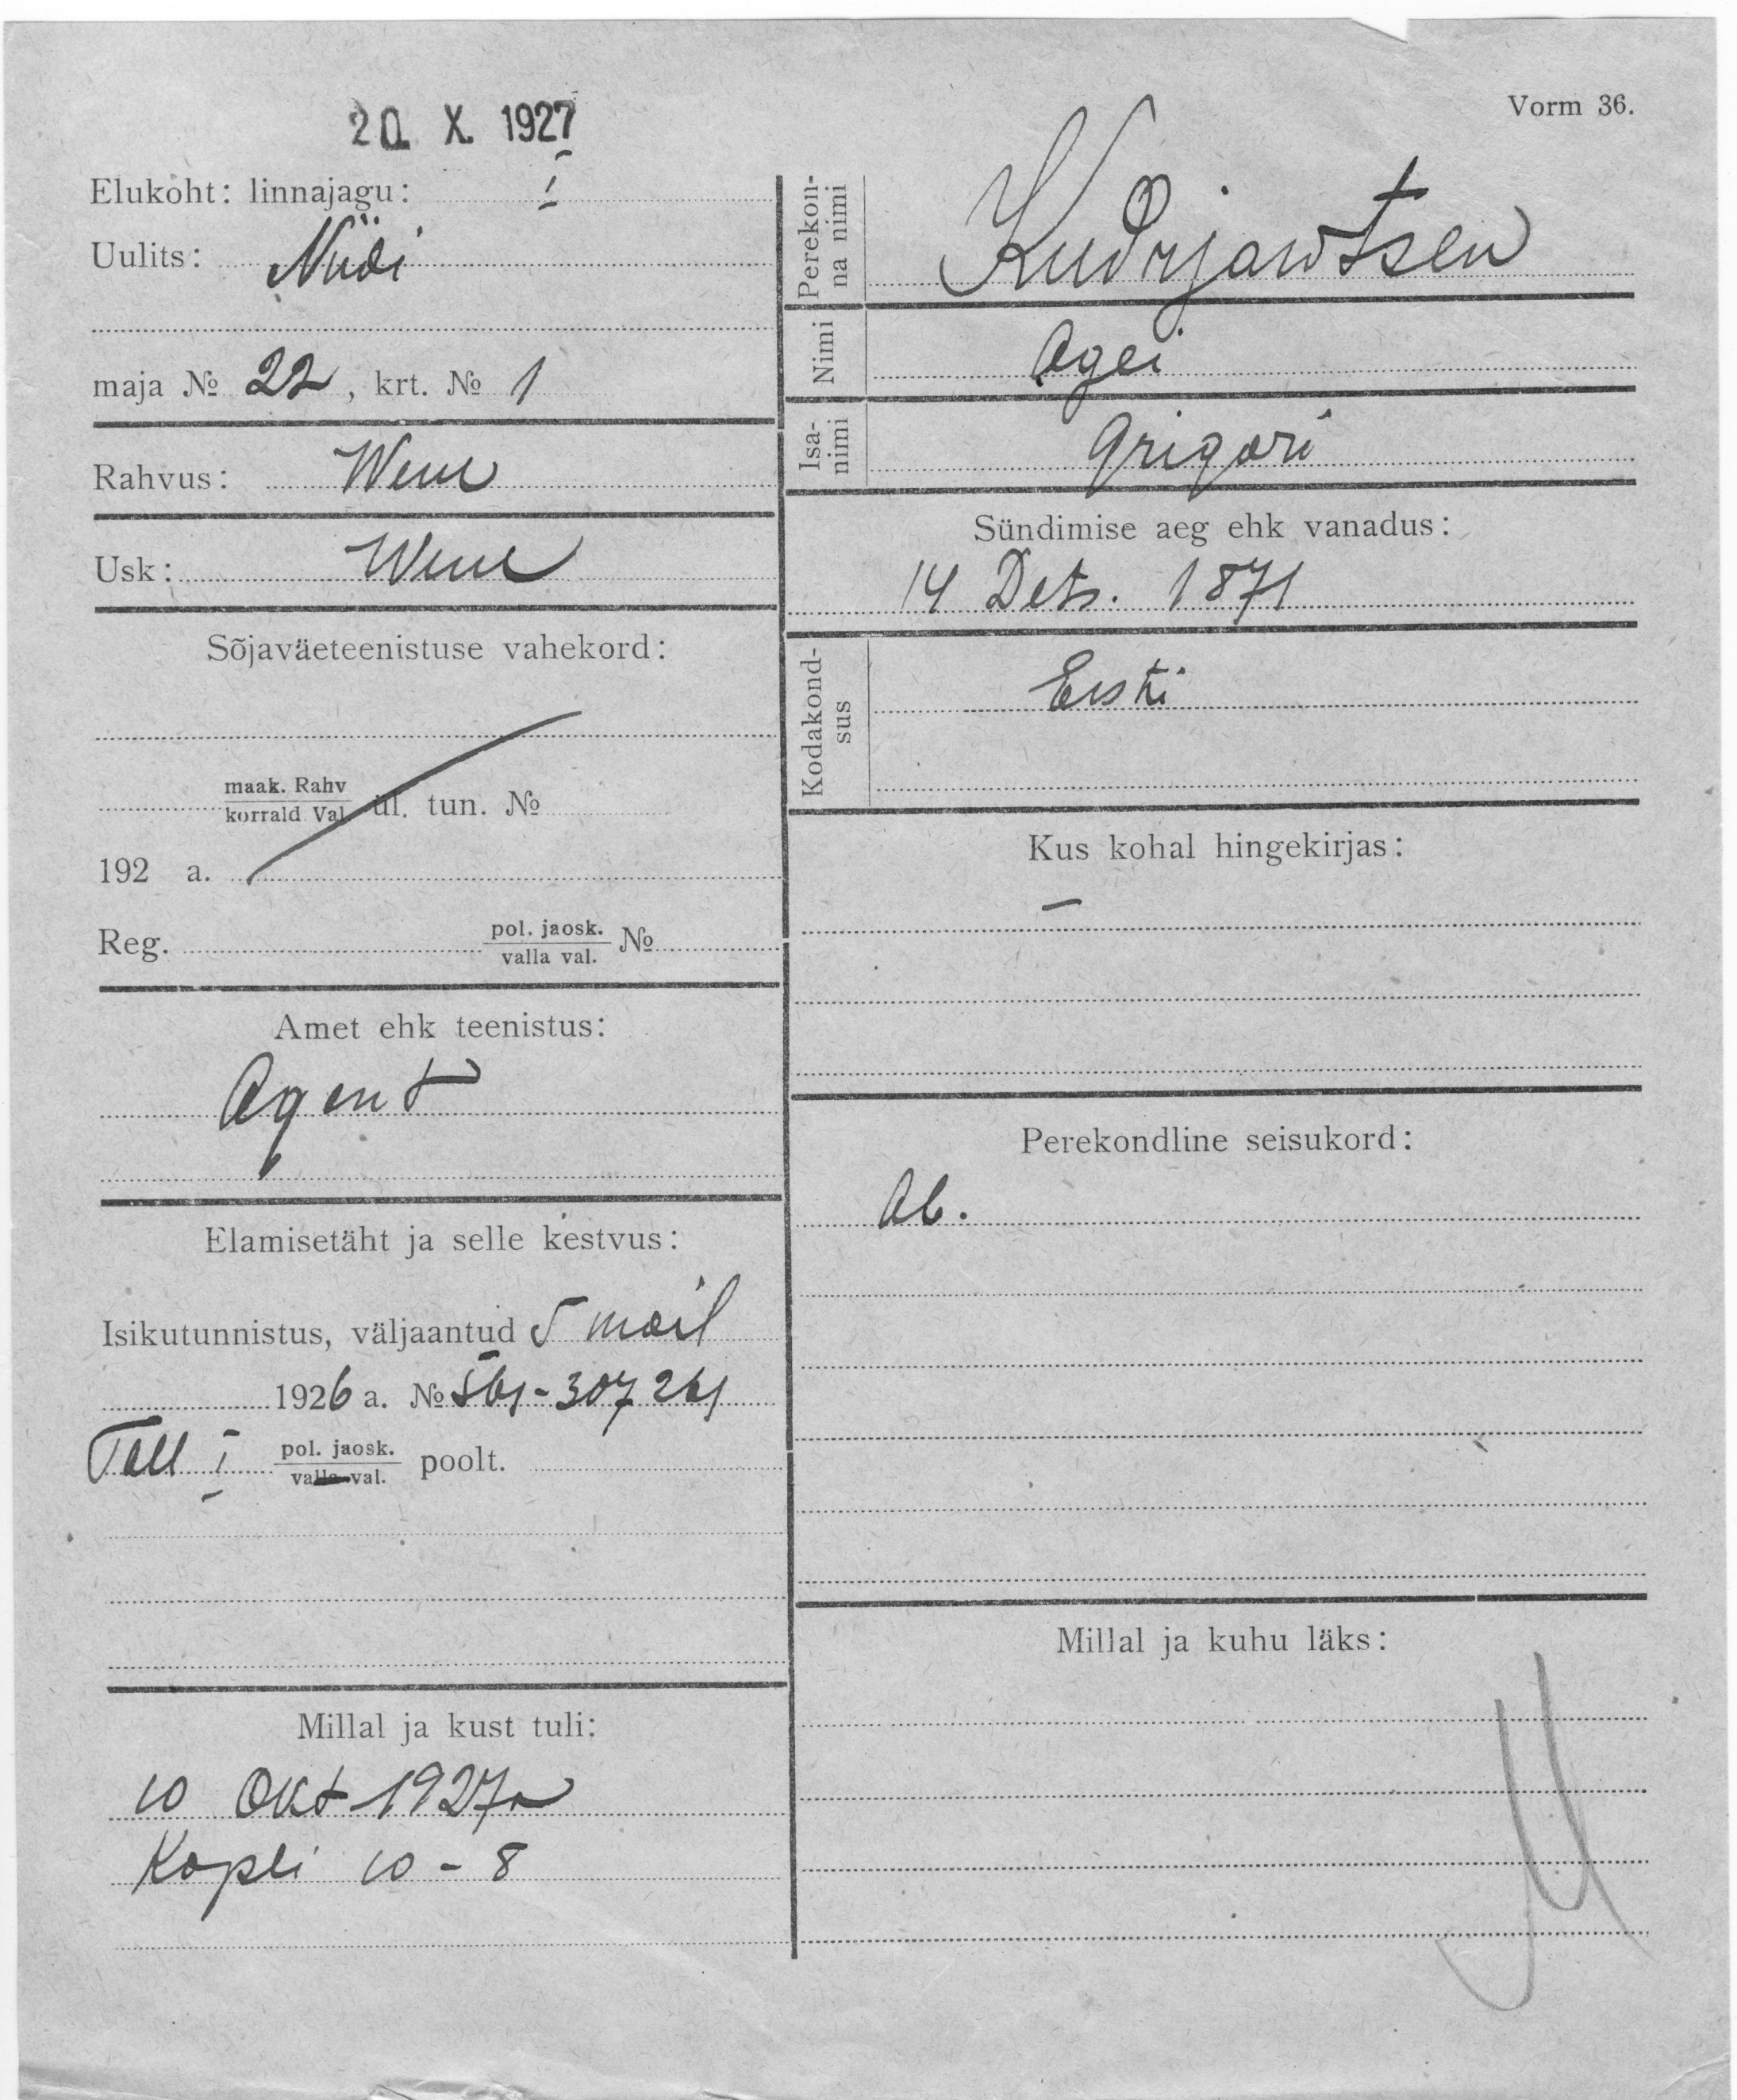 20. X. 1927
Vorm 36.
Elukoht: linnajagu: I
Uulits: Niidi
maja № 22, krt. № 1
Rahvus: Wene
Usk: Wene
Sõjaväeteenistuse vahekord:
maak. Rahv
korrald. Val. ül. tun. №
192 a.
Reg. pol. jaosk. №
valla val.
Amet ehk teenistus:
Agent
Elamisetäht ja selle kestvus:
Isikutunnistus, väljaantud 5 mail
1926 a. №
Tall I pol. jaosk. poolt.
valla val.
Millal ja kust tuli:
10 Okt 1927a
Kopli 10-8
Perekon-
na nimi Kudrjawtsew
Nimi Agei
Isa-
nimi Grigori
Sündimise aeg ehk vanadus:
14 Dets. 1871
Kodakond-
sus Eesti
Kus kohal hingekirjas:
—
Perekondline seisukord:
Ab.
Millal ja kuhu läks: